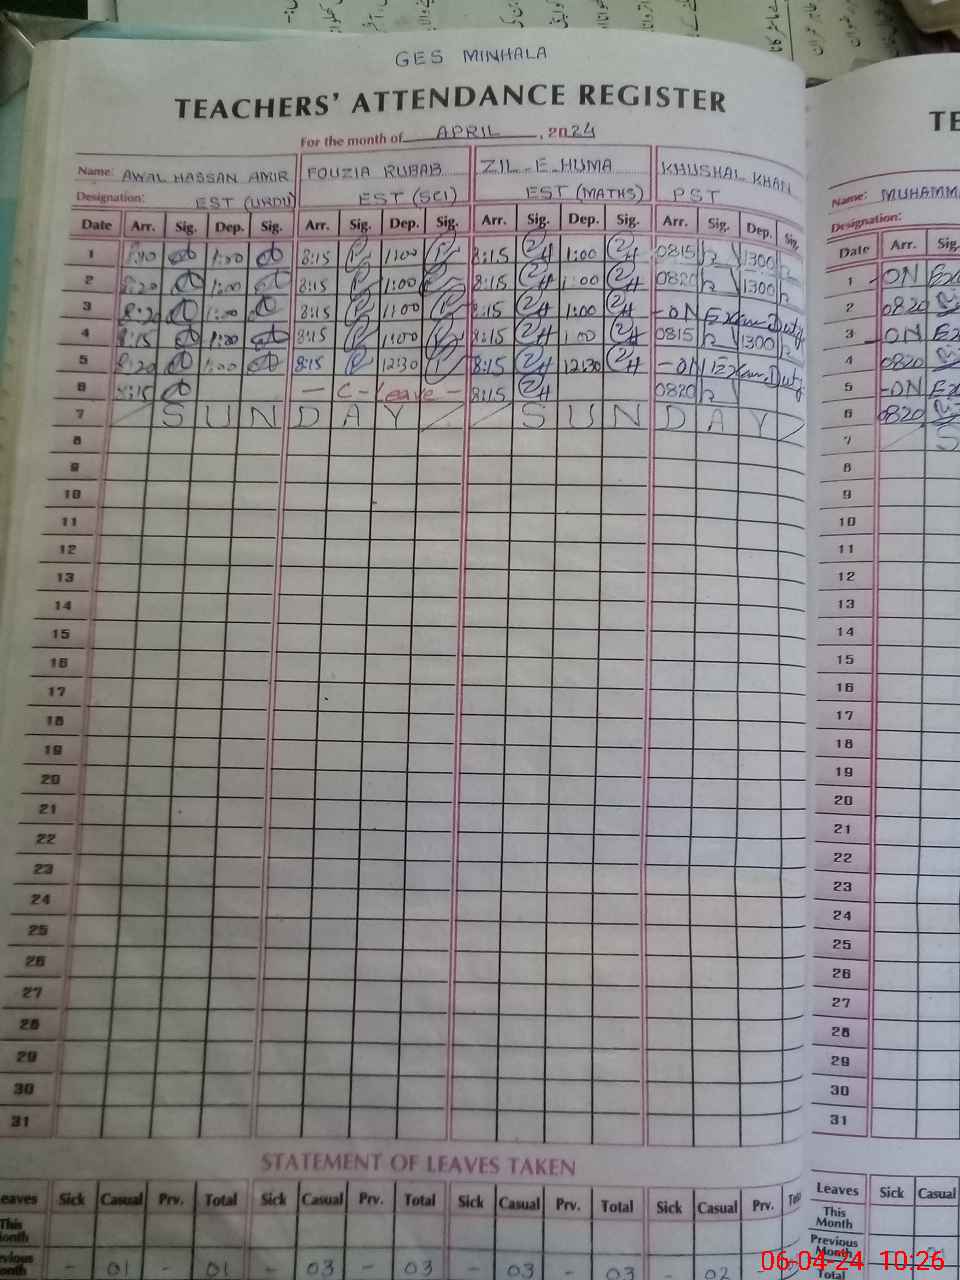 GES MINHALA
TEACHERS' ATTENDANCE REGISTER
For the month of APRIL, 2024
Name: AWAL HASSAN AMIR FOUZIA RUBAB ZIL-E-HUMA KHUSHAL KHAN
Designation: EST (URDU) EST (SCI) EST (MATHS) PST
Date Arr. Sig. Dep. Sig. Arr. Sig. Dep. Sig. Arr. Sig. Dep. Sig. Arr. Sig. Dep. Sig.
1 1:00 8:15 1:00 8:15 1:00 0815 1300
2 8:20 1:00 8:15 1:00 8:15 1:00 0820 1300
3 8:20 1:00 8:15 1:00 8:15 1:00 -ON Exam Duty
4 8:15 1:00 8:15 1:00 8:15 1:00 0815 1300
5 8:20 1:00 8:15 12:30 8:15 12:30 -ON Exam Duty
6 8:15 - C - Leave - 8:15 0820
7 SUNDAY SUNDAY
8
9
10
11
12
13
14
15
16
17
18
19
20
21
22
23
24
25
26
27
28
29
30
31
STATEMENT OF LEAVES TAKEN
Leaves Sick Casual Prv. Total Sick Casual Prv. Total Sick Casual Prv. Total Sick Casual Prv.
This Month
Previous Month - 01 - 01 - 03 - 03 - 03 - 03 - 02
TE
Name: MUHAMM
Designation:
Date Arr. Sig.
1 -ON Ex
2 0820
3 -ON Ex
4 0820
5 -ON Ex
6 0820
7 S
8
9
10
11
12
13
14
15
16
17
18
19
20
21
22
23
24
25
26
27
28
29
30
31
Leaves Sick Casual
This Month
Previous Month
Total
06-04-24 10:26